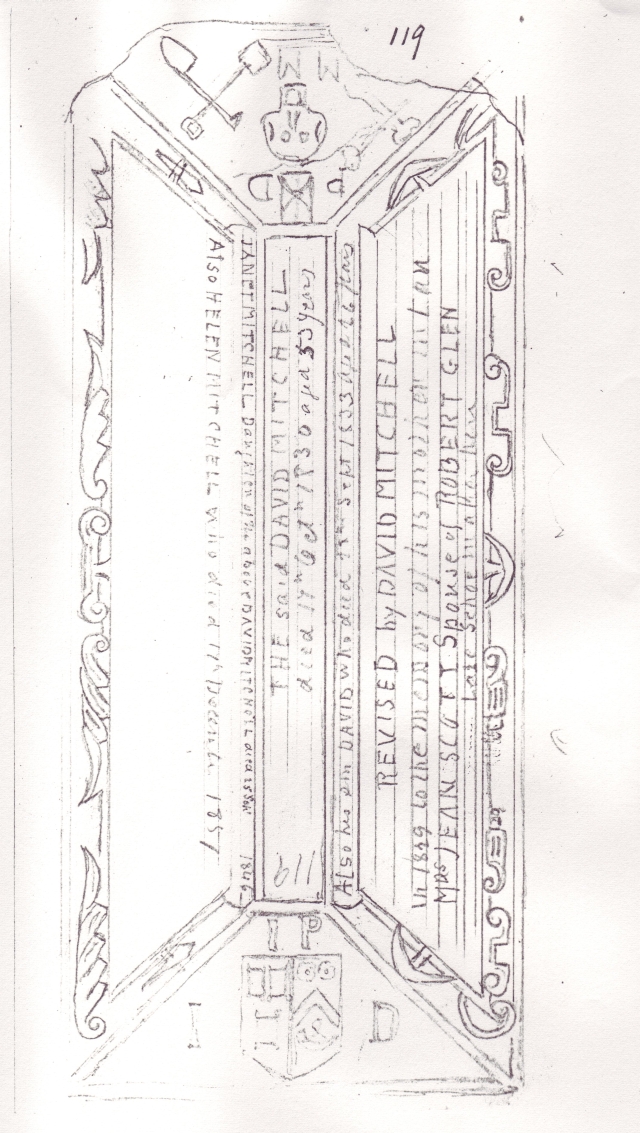 119
M M
D P
REVISED by DAVID MITCHELL
In 1849 to the memory of his mother in Lan
Mrs JEAN SCOTT Spouse of ROBERT GLEN
Late
ALSO his son DAVID who died Sept 1833 aged 26 years
THE said DAVID MITCHELL
died 17th Oct 1830 aged 53 years
119
JANET MITCHELL Daughter of the above DAVID MITCHELL 1846
Also HELEN MITCHELL who died 11th December 1857
I P
I D